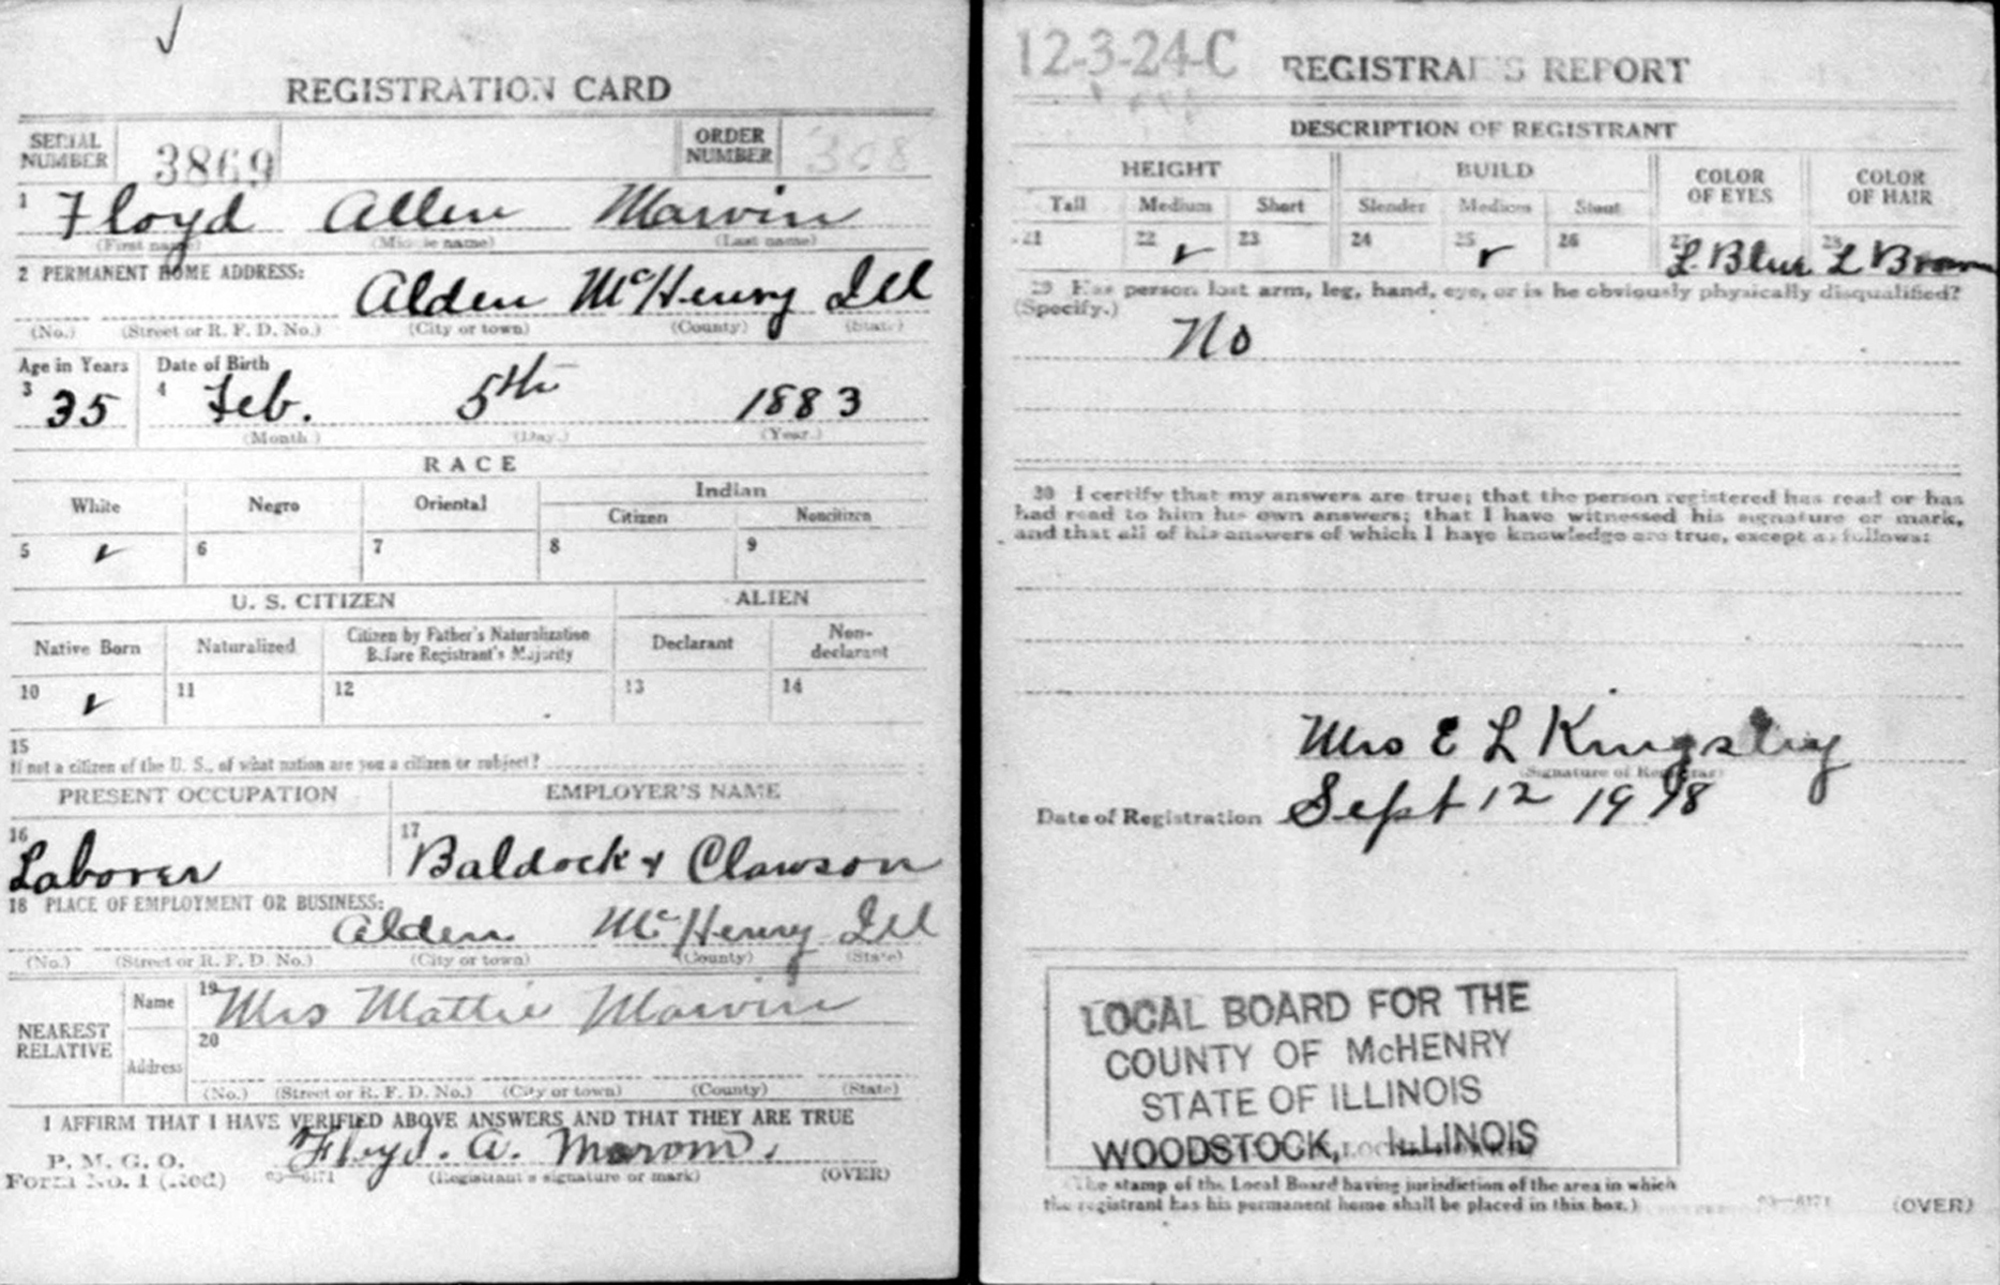 REGISTRATION CARD
SERIAL NUMBER 3869 ORDER NUMBER 308
1 Floyd Allen Marvin
(First name) (Middle name) (Last name)
2 PERMANENT HOME ADDRESS:
Alden McHenry Ill
(No.) (Street or R. F. D. No.) (City or town) (County) (State)
Age in Years Date of Birth
3 35 4 Feb. 5th 1883
(Month) (Day) (Year)
RACE
White Negro Oriental Indian
Citizen Noncitizen
5 ✓ 6 7 8 9
U. S. CITIZEN ALIEN
Native Born Naturalized Citizen by Father's Naturalization Before Registrant's Majority Declarant Non-declarant
10 ✓ 11 12 13 14
15
If not a citizen of the U. S., of what nation are you a citizen or subject?
PRESENT OCCUPATION EMPLOYER'S NAME
16 Laborer 17 Baldock & Clawson
18 PLACE OF EMPLOYMENT OR BUSINESS:
Alden McHenry Ill
(No.) (Street or R. F. D. No.) (City or town) (County) (State)
NEAREST RELATIVE Name 19 Mrs Mattie Marvin
Address 20
(No.) (Street or R. F. D. No.) (City or town) (County) (State)
I AFFIRM THAT I HAVE VERIFIED ABOVE ANSWERS AND THAT THEY ARE TRUE
P. M. G. O.
Form No. 1 (Red) 03—6171 Floyd. A. Marvin.
(Registrant's signature or mark) (OVER)
12-3-24-C REGISTRAR'S REPORT
DESCRIPTION OF REGISTRANT
HEIGHT BUILD COLOR OF EYES COLOR OF HAIR
Tall Medium Short Slender Medium Stout
21 22 ✓ 23 24 25 ✓ 26 27 L Blue 28 L Brown
29 Has person lost arm, leg, hand, eye, or is he obviously physically disqualified?
(Specify.)
No
30 I certify that my answers are true; that the person registered has read or has
had read to him his own answers; that I have witnessed his signature or mark,
and that all of his answers of which I have knowledge are true, except as follows:
Mrs E L Kingsley
(Signature of Registrar)
Date of Registration Sept 12 1918
LOCAL BOARD FOR THE
COUNTY OF McHENRY
STATE OF ILLINOIS
WOODSTOCK, ILLINOIS
(The stamp of the Local Board having jurisdiction of the area in which
the registrant has his permanent home shall be placed in this box.)
03—6171 (OVER)